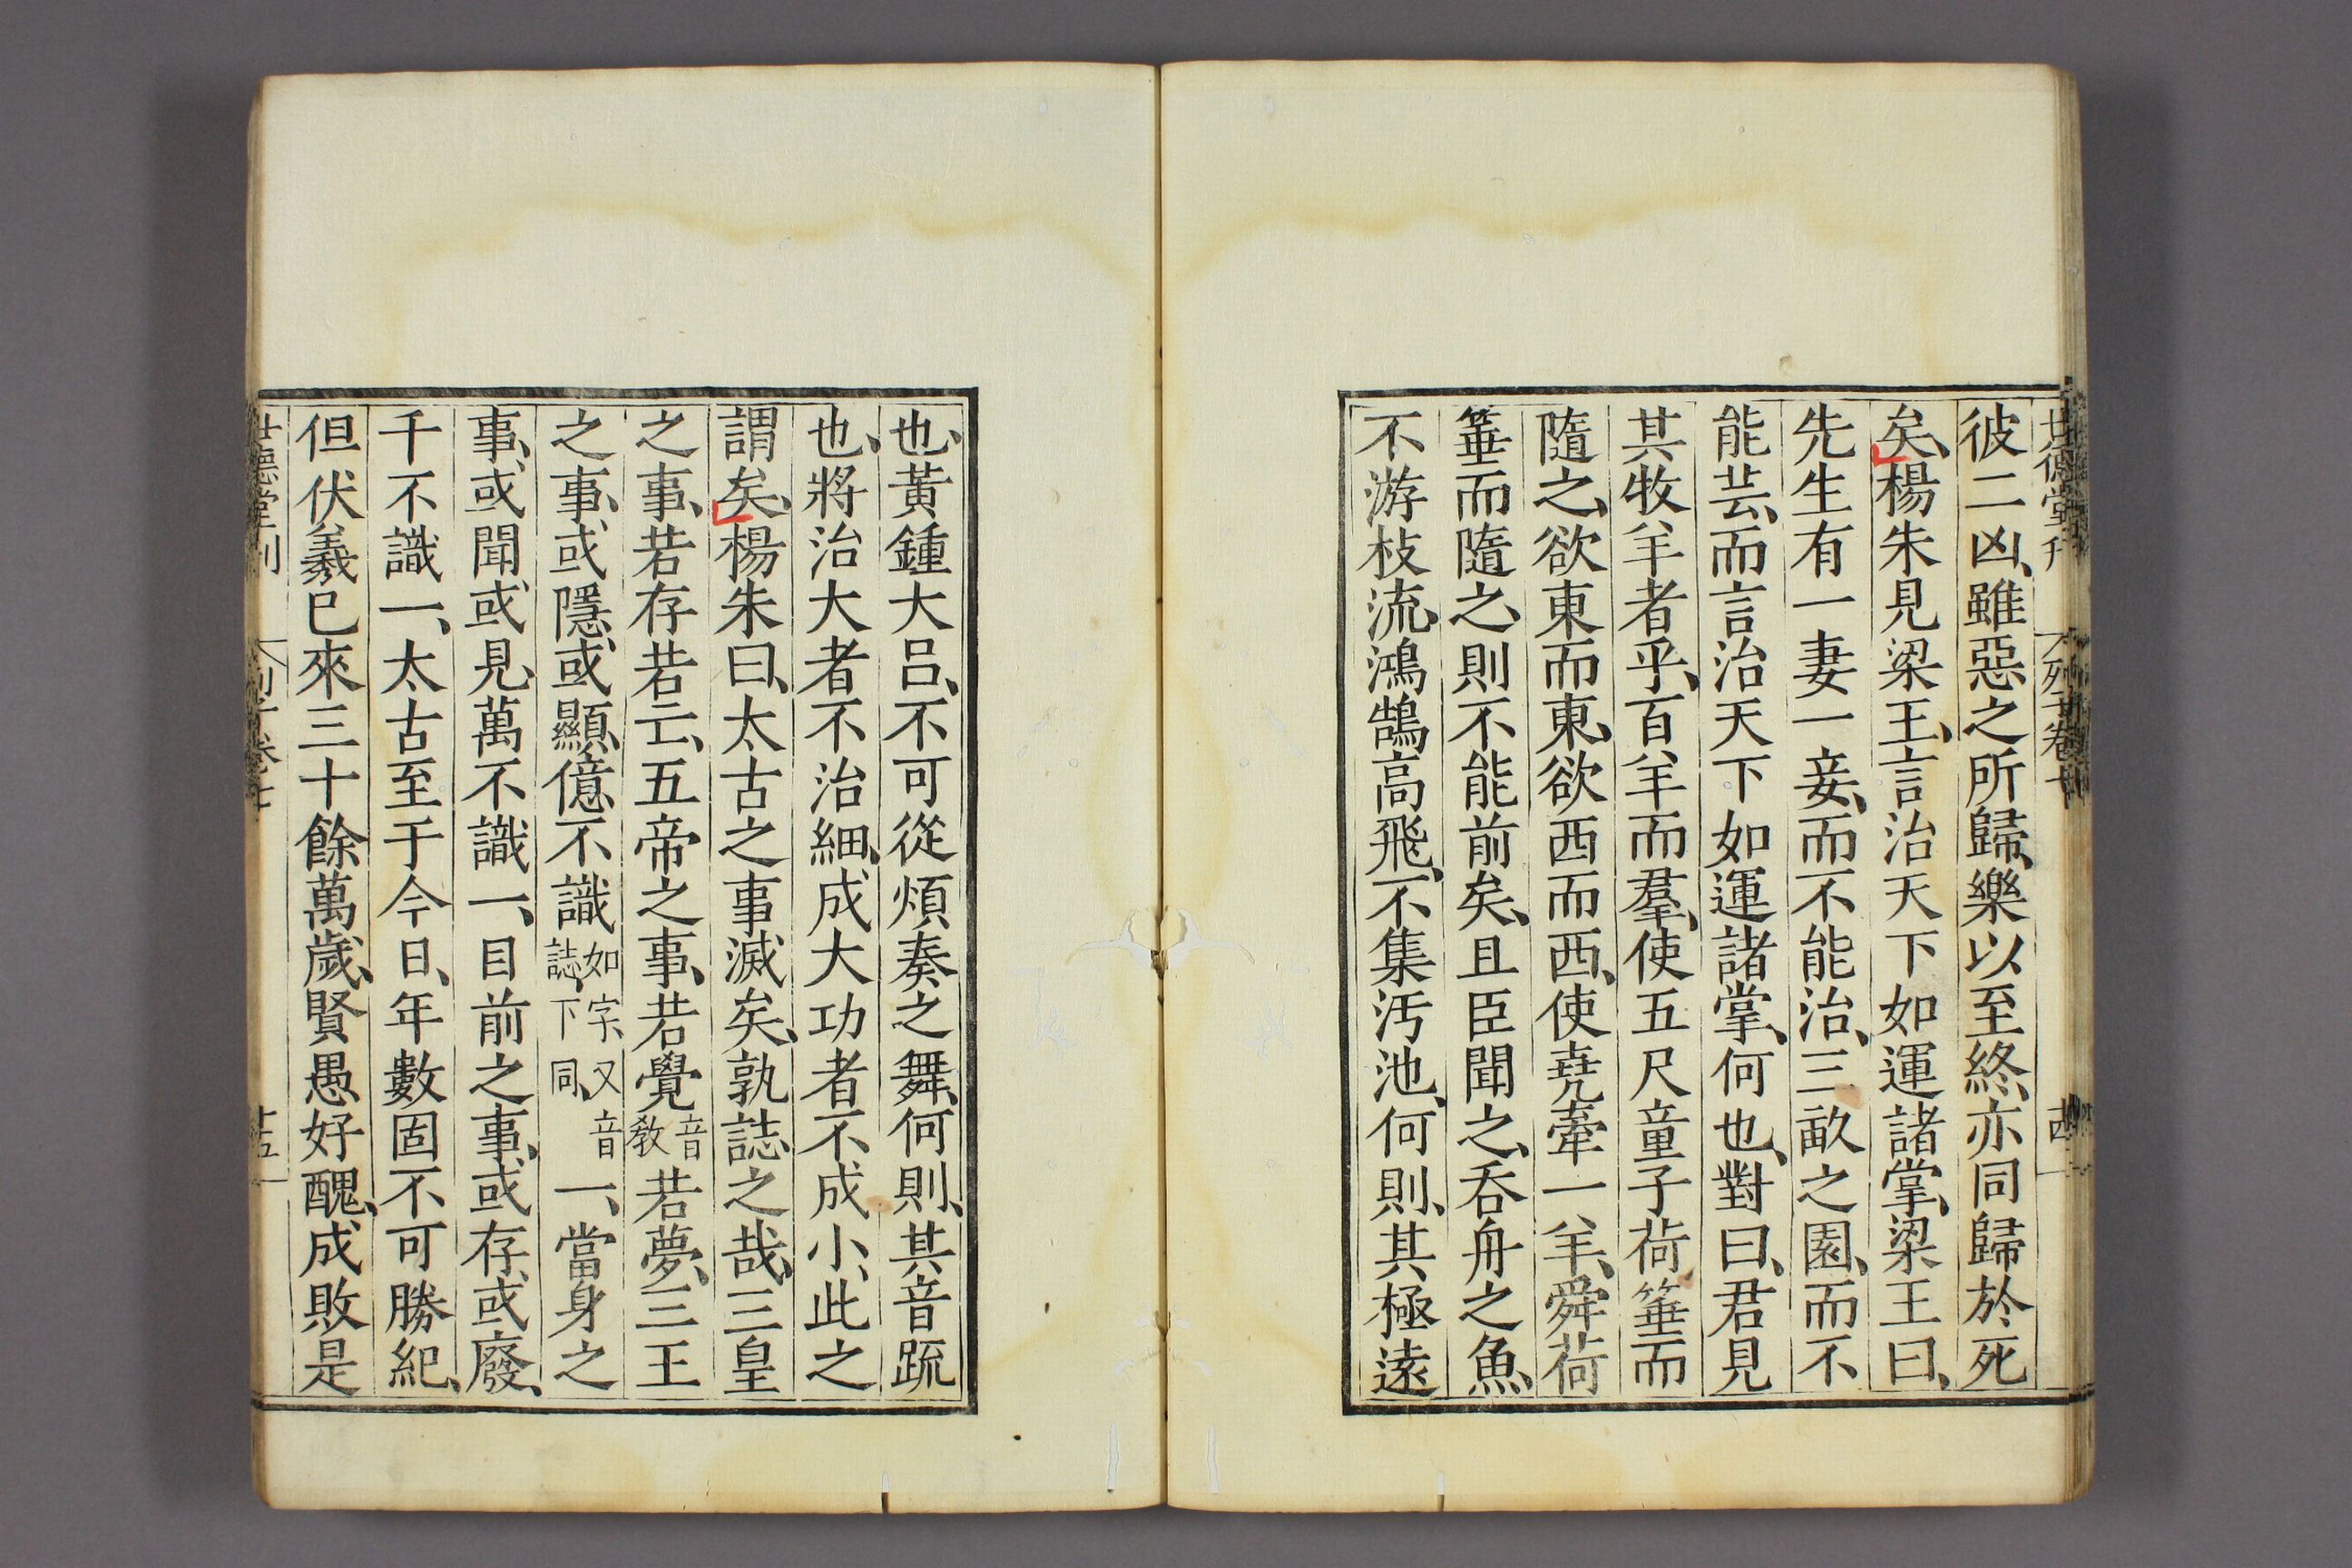 彼二凶、雖惡之所歸、樂以至終、亦同歸於死
矣、楊朱見梁王、言治天下如運諸掌、梁王曰、
先生有一妻一妾、而不能治、三畝之園、而不
能芸、而言治天下如運諸掌、何也、對曰、君見
其牧羊者乎、百羊而羣、使五尺童子荷箠而
隨之、欲東而東、欲西而西、使堯牽一羊、舜荷
箠而隨之、則不能前矣、且臣聞之、吞舟之魚、
不游枝流、鴻鵠高飛、不集汚池、何則、其極遠
也、黃鍾大呂、不可從煩奏之舞、何則、其音疏
也、將治大者不治細、成大功者不成小、此之
謂矣、楊朱曰、太古之事滅矣、孰誌之哉、三皇
之事、若存若亡、五帝之事、若覺音教若夢、三王
之事、或隱、或顯、億不識如字、又音誌、下同、一、當身之
事、或聞、或見、萬不識一、目前之事、或存、或廢、
千不識一、太古至于今日、年數固不可勝紀、
但伏羲已來三十餘萬歲、賢愚好醜、成敗是
世德堂刊
列子卷七
廿五